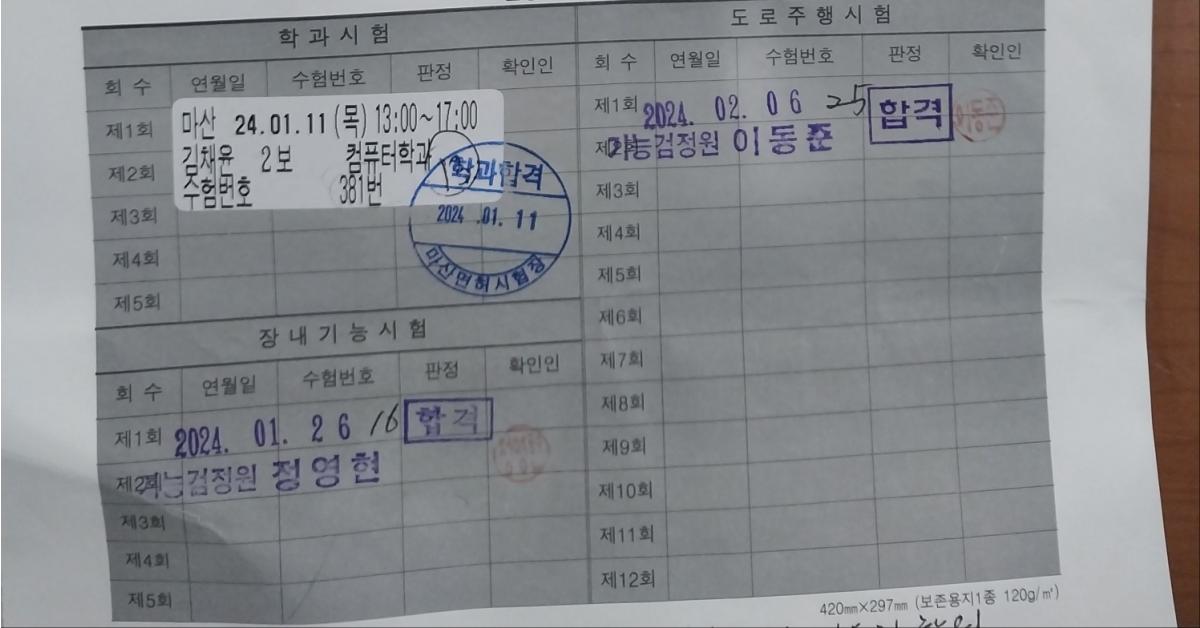 학과시험
회 수 연월일 수험번호 판정 확인인
제1회
제2회
제3회
제4회
제5회
마산 24.01.11 (목) 13:00~17:00
김채윤 2보 컴퓨터학과
수험번호 381번
학과합격
2024 .01. 11
마산면허시험장
장내기능시험
회 수 연월일 수험번호 판정 확인인
제1회 2024. 01. 26 16 합격
제2회 기능검정원 정영현
제3회
제4회
제5회
도로주행시험
회 수 연월일 수험번호 판정 확인인
제1회 2024. 02. 06 25 합격 이동준
제2회 기능검정원 이동준
제3회
제4회
제5회
제6회
제7회
제8회
제9회
제10회
제11회
제12회
420㎜×297㎜ (보존용지1종 120g/㎡)